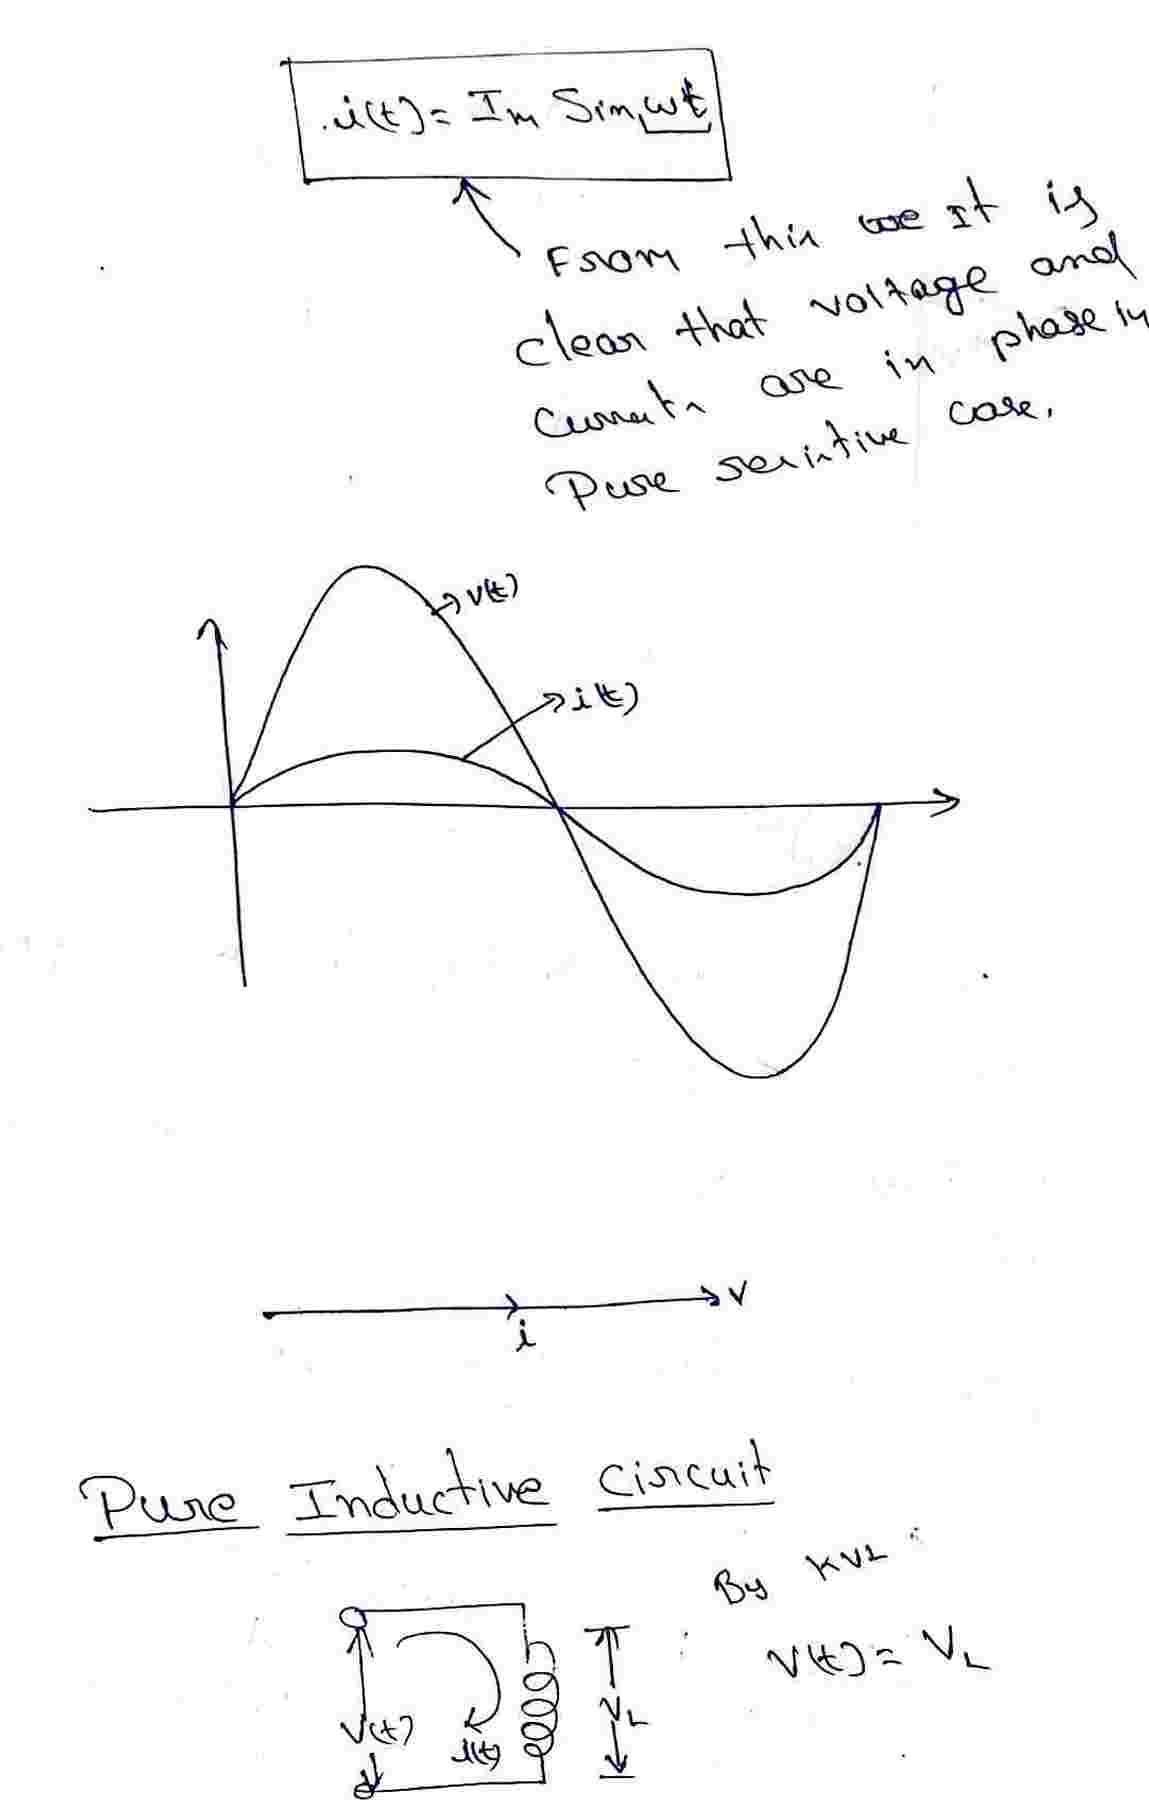 i(t) = Im Sin ωt
From this we It is
clear that voltage and
are in phase in
Pure case.
v(t)
i(t)
V
i
Pure Inductive circuit
By KVL
V(t) = VL
V(t)
i(t)
VL